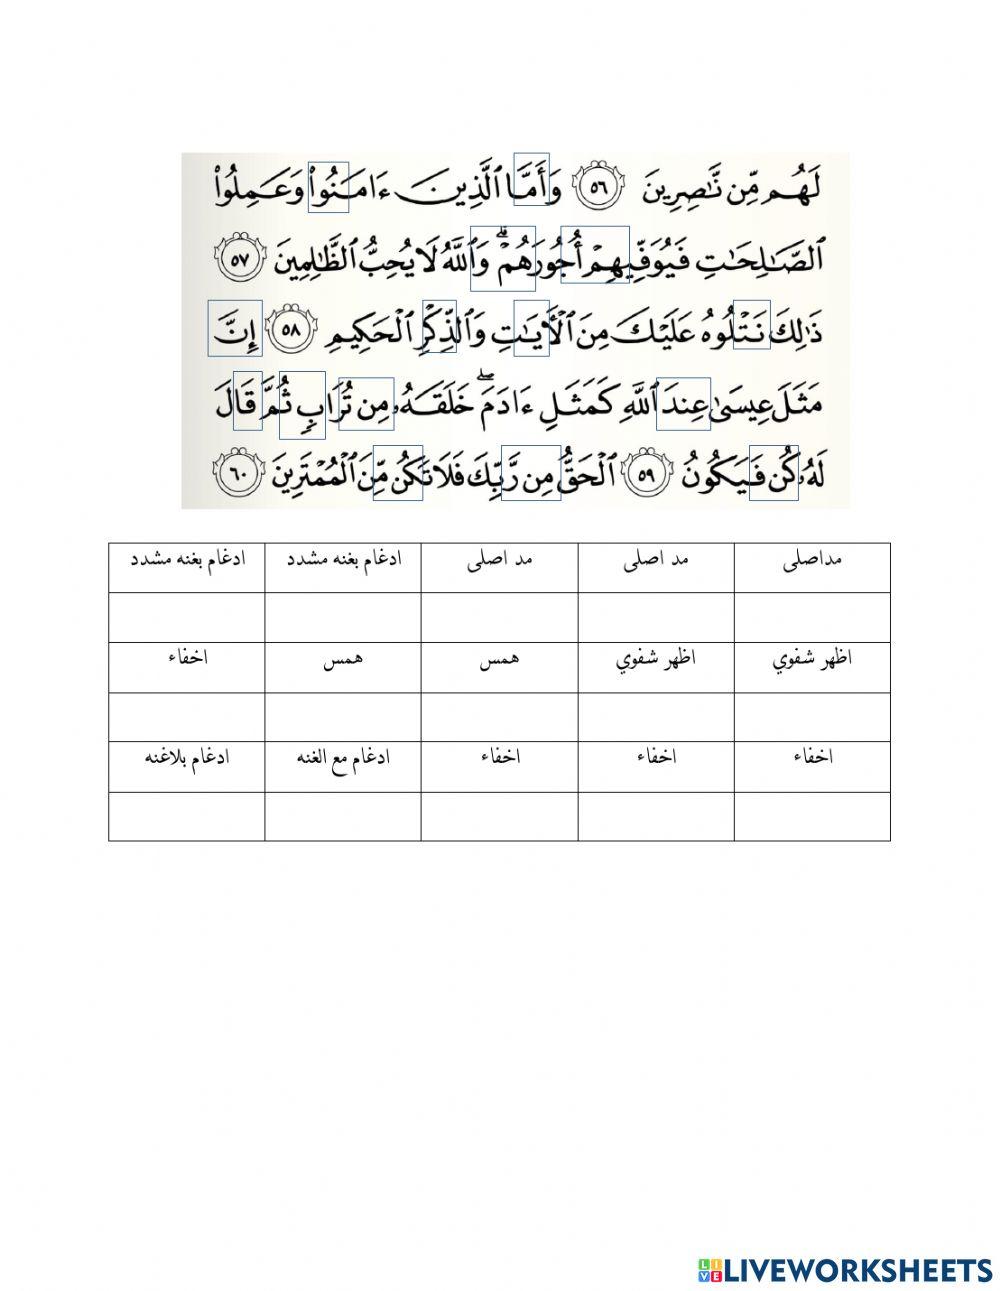 لَهُم مِّن نَّٰصِرِينَ ٥٦ وَأَمَّا ٱلَّذِينَ ءَامَنُوا۟ وَعَمِلُوا۟
ٱلصَّٰلِحَٰتِ فَيُوَفِّيهِمْ أُجُورَهُمْ ۗ وَٱللَّهُ لَا يُحِبُّ ٱلظَّٰلِمِينَ ٥٧
ذَٰلِكَ نَتْلُوهُ عَلَيْكَ مِنَ ٱلْءَايَٰتِ وَٱلذِّكْرِ ٱلْحَكِيمِ ٥٨ إِنَّ
مَثَلَ عِيسَىٰ عِندَ ٱللَّهِ كَمَثَلِ ءَادَمَ ۖ خَلَقَهُۥ مِن تُرَابٍ ثُمَّ قَالَ
لَهُۥ كُن فَيَكُونُ ٥٩ ٱلْحَقُّ مِن رَّبِّكَ فَلَا تَكُن مِّنَ ٱلْمُمْتَرِينَ ٦٠
مداصلى مد اصلى مد اصلى ادغام بغنه مشدد ادغام بغنه مشدد
اظهر شفوي اظهر شفوي همس همس اخفاء
اخفاء اخفاء اخفاء ادغام مع الغنه ادغام بلاغنه
LIVE LIVEWORKSHEETS